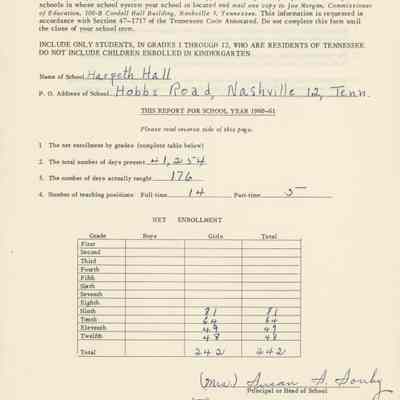 schools in whose school system your school is located and mail one copy to Joe Morgan, Commissioner
of Education, 100-B Cordell Hull Building, Nashville 3, Tennessee. This information is required in
accordance with Section 47-1717 of the Tennessee Code Annotated. Do not complete this form until
the close of your school term.
INCLUDE ONLY STUDENTS, IN GRADES 1 THROUGH 12, WHO ARE RESIDENTS OF TENNESSEE
DO NOT INCLUDE CHILDREN ENROLLED IN KINDERGARTEN
Name of School Harpeth Hall
P. O. Address of School Hobbs Road, Nashville 12, Tenn.
THIS REPORT FOR SCHOOL YEAR 1960-61
Please read reverse side of this page.
1 The net enrollment by grades (complete table below)
2. The total number of days present 41,254
3. The number of days actually taught 176
4. Number of teaching positions: Full-time 14 Part-time 5
NET ENROLLMENT
Grade Boys Girls Total
First
Second
Third
Fourth
Fifth
Sixth
Seventh
Eighth
Ninth 81 81
Tenth 64 64
Eleventh 49 49
Twelfth 48 48
Total 242 242
(Mrs.) Susan S. Souby
Principal or Head of School